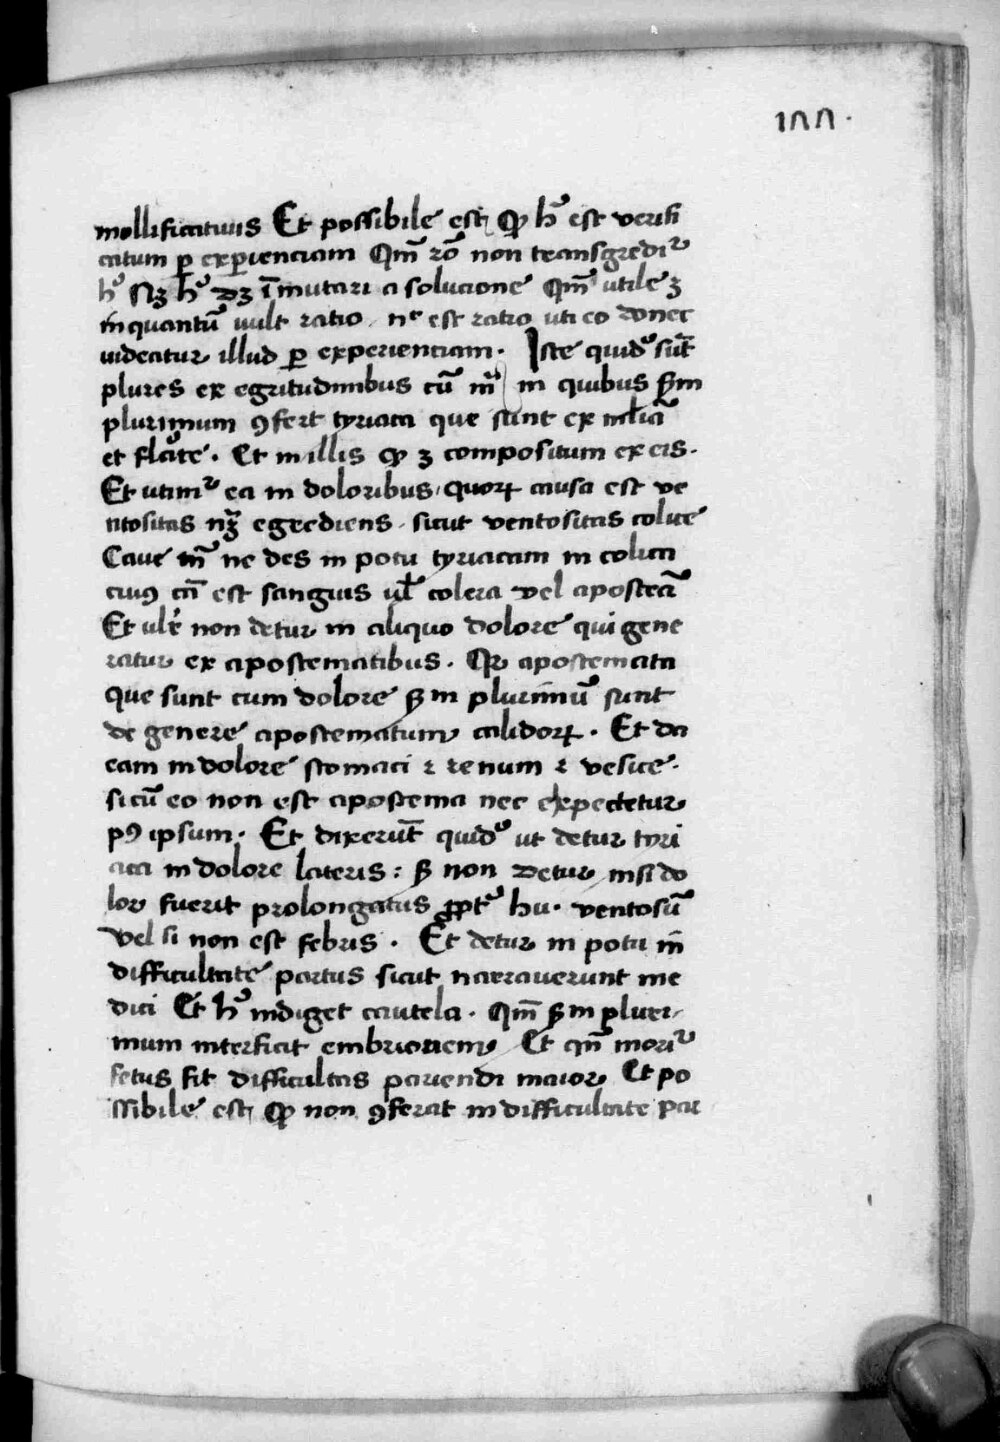 177.
mollificatiuis Et possibile est ꝙ hͦ est verifi
catum ꝑ exꝑienciam Qm̄ rō non transgredir᷑
hͦ Sꝫ hͦ dꝫ īmutari a solucione Qm̄ utile ꝫ
inquantū uult ratio ne est ratio uti eo donec
uideatur illud ꝑ experienciam. Iste quidͦ sūt
plures ex egritudinibus cū mᵃ in quibus ẜm
plurimum ꝯfert tyriaca que sunt ex
et. Et in illis ꝙ ꝫ compositum ex eis.
Et utimr᷑ ea in doloribus quoꝝ causa est ve
ntositas nꝫ egrediens sicut ventositas colice
Caue ne des in potu tyriacam in colica
cuiꝰ cā est sanguis ul̄ colera vel apostea
Et ulr̄ non detur in aliquo dolore qui gene
ratur ex apostematibus. Qr apostemata
que sunt cum dolore ẜm plurimū sunt
de genere apostematum calidoꝝ. Et da
eam in dolore stomaci ⁊ renum ⁊ vesice.
si cū eo non est apostema nec expectetur
pꝰ ipsum. Et dixerūt quidͦ ut detur tyri
aca in dolore lateris: ẜ non detur nisi do
lor fuerit prolongatus ꝓpt᷑ hu. ventosū
vel si non est febris. Et detur in potu in
difficultate partus sicut narrauerunt me
dici Et hͦ indiget cautela. Qm̄ ẜm pluri
mum interficit embrionem Et qn̄ morir᷑
fetus fit difficultas pariendi maior Et po
ssibile est ꝙ non ꝯferat in difficultate par